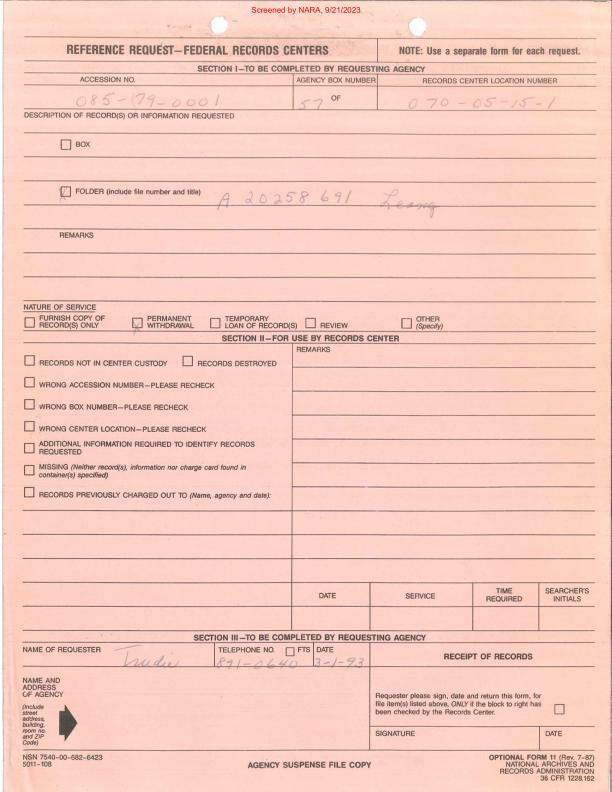 Screened by NARA, 9/21/2023
REFERENCE REQUEST—FEDERAL RECORDS CENTERS
NOTE: Use a separate form for each request.
SECTION I—TO BE COMPLETED BY REQUESTING AGENCY
ACCESSION NO.
AGENCY BOX NUMBER
RECORDS CENTER LOCATION NUMBER
085-79-0001
57 OF
070-05-15-1
DESCRIPTION OF RECORD(S) OR INFORMATION REQUESTED
BOX
FOLDER (include file number and title) A 20258 691 Leong
REMARKS
NATURE OF SERVICE
FURNISH COPY OF RECORD(S) ONLY
PERMANENT WITHDRAWAL
TEMPORARY LOAN OF RECORD(S)
REVIEW
OTHER (Specify)
SECTION II—FOR USE BY RECORDS CENTER
RECORDS NOT IN CENTER CUSTODY
RECORDS DESTROYED
REMARKS
WRONG ACCESSION NUMBER—PLEASE RECHECK
WRONG BOX NUMBER—PLEASE RECHECK
WRONG CENTER LOCATION—PLEASE RECHECK
ADDITIONAL INFORMATION REQUIRED TO IDENTIFY RECORDS
REQUESTED
MISSING (Neither record(s), information nor charge card found in
container(s) specified)
RECORDS PREVIOUSLY CHARGED OUT TO (Name, agency and date):
DATE
SERVICE
TIME REQUIRED
SEARCHER'S INITIALS
SECTION III—TO BE COMPLETED BY REQUESTING AGENCY
NAME OF REQUESTER
Trudie
TELEPHONE NO. FTS
891-0640
DATE
3-1-93
RECEIPT OF RECORDS
NAME AND
ADDRESS
OF AGENCY
(Include
street
address,
building,
room no.
and ZIP
Code)
Requester please sign, date and return this form, for
file item(s) listed above, ONLY if the block to right has
been checked by the Records Center.
SIGNATURE
DATE
NSN 7540-00-682-6423
5011-108
AGENCY SUSPENSE FILE COPY
OPTIONAL FORM 11 (Rev. 7-87)
NATIONAL ARCHIVES AND
RECORDS ADMINISTRATION
36 CFR 1228.162